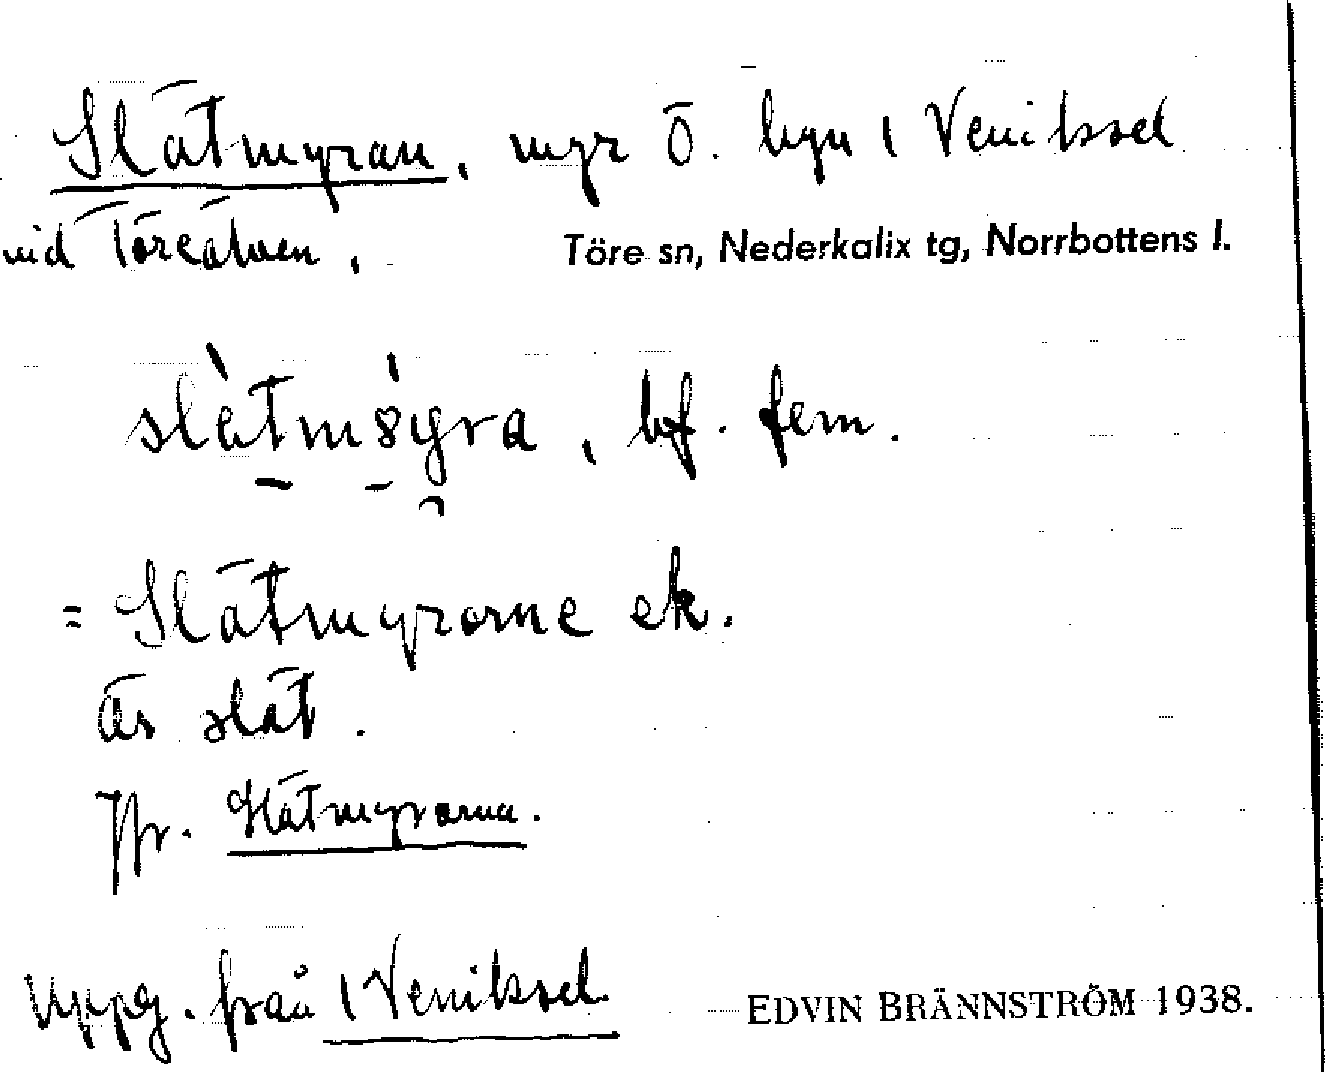 Slätmyran, myr Ö. byn 1 Veniksel
vid Töreälven,
Töre sn, Nederkalix tg, Norrbottens l.
slètm8yra, bf. fem.
= Slätmyrorne ek.
Är slät.
Jfr. Slätmyrorna.
Uppg. från 1 Veniksel
EDVIN BRÄNNSTRÖM 1938.